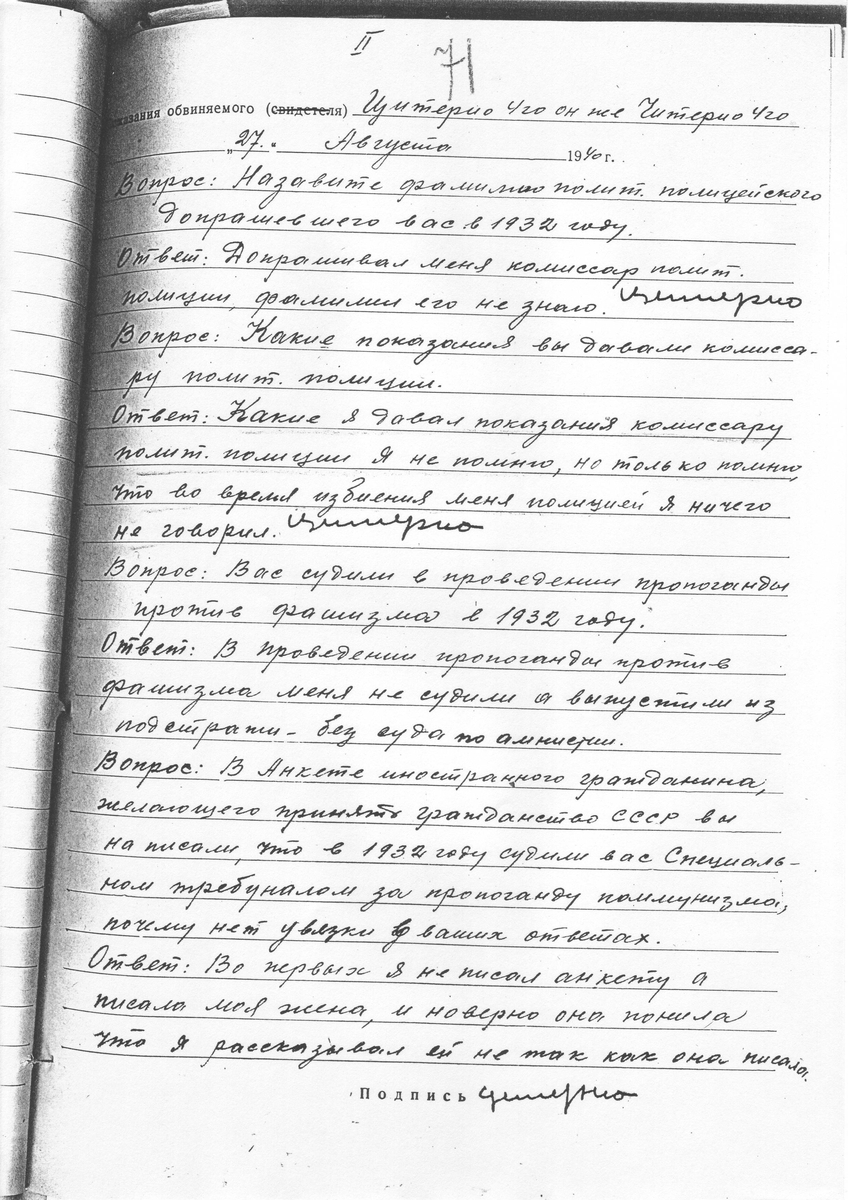 II
71
казания обвиняемого (свидетеля) Цитерио Уго он же Читерио Уго
„27." Августа 1940 г.
Вопрос: Назавите фамилию полит. полицейского
допрашевшего вас в 1932 году.
Ответ: Допрашивал меня комиссар полит.
полиции, фамилии его не знаю. Цитерио
Вопрос: Какие показания вы давали комисса-
ру полит. полиции.
Ответ: Какие я давал показания комиссару
полит. полиции я не помню, но только помню,
что во время избиения меня полицией я ничего
не говорил. Цитерио
Вопрос: Вас судили в проведении пропоганды
против фашизма в 1932 году.
Ответ: В проведении пропоганды против
фашизма меня не судили а выпустили из
подстражи - без суда по амнистии.
Вопрос: В Анкете иностранного гражданина,
желающего принять гражданство СССР вы
на писали, что в 1932 году судили вас Специаль-
ном требуналом за пропоганду коммунизма,
почему нет увязки в ваших ответах.
Ответ: Во первых я не писал анкету а
писала моя жена, и новерно она поняла
что я рассказывал ей не так как она писала.
Подпись Цитерио